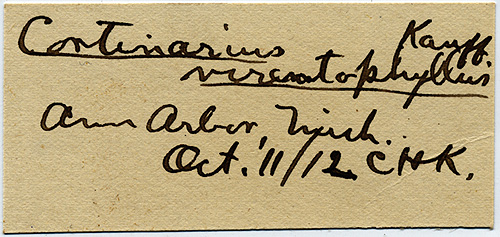 Cortinarius Kauff.
virentophyllus
Ann Arbor, Mich.
Oct. 11/12 CHK.